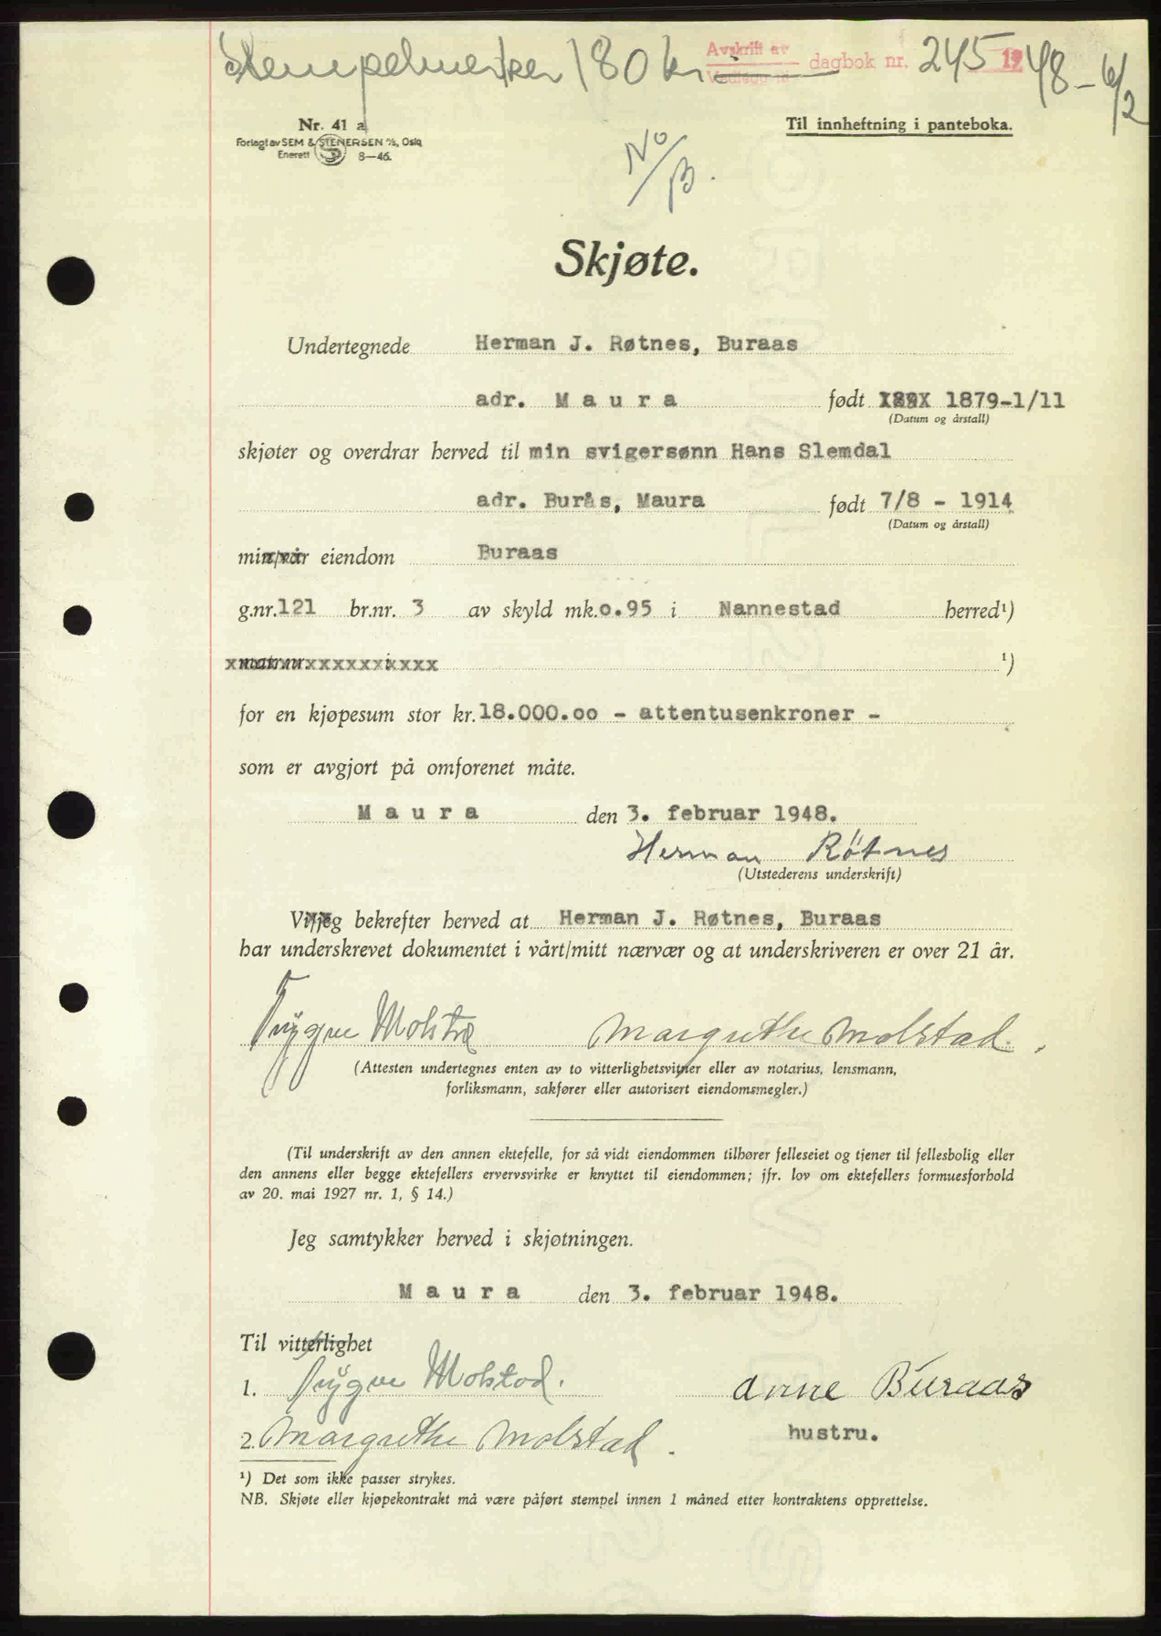 Stempelmerker 180 kr. Avskrift av dagbok nr. 245 1948 - 6/2
Nr. 41 a
Forlagt av SEM & STENERSEN A/S, Oslo
Enerett 8-46.
Til innheftning i panteboka.
No/B.
Skjøte.
Undertegnede Herman J. Røtnes, Buraas
adr. Maura født 1879-1/11
(Datum og årstall)
skjøter og overdrar herved til min svigersønn Hans Slemdal
adr. Burås, Maura født 7/8 - 1914
(Datum og årstall)
min/vår eiendom Buraas
g.nr. 121 br.nr. 3 av skyld mk. 0.95 i Nannestad herred¹)
xmatr.nr.xxxxxxxixxxx ¹)
for en kjøpesum stor kr. 18.000.00 - attentusenkroner -
som er avgjort på omforenet måte.
Maura den 3. februar 1948.
Herman Røtnes
(Utstederens underskrift)
Vi/jeg bekrefter herved at Herman J. Røtnes, Buraas
har underskrevet dokumentet i vårt/mitt nærvær og at underskriveren er over 21 år.
Trygve Molstad Margrethe Molstad.
(Attesten undertegnes enten av to vitterlighetsvitner eller av notarius, lensmann,
forliksmann, sakfører eller autorisert eiendomsmegler.)
(Til underskrift av den annen ektefelle, for så vidt eiendommen tilhører felleseiet og tjener til fellesbolig eller
den annens eller begge ektefellers ervervsvirke er knyttet til eiendommen; jfr. lov om ektefellers formuesforhold
av 20. mai 1927 nr. 1, § 14.)
Jeg samtykker herved i skjøtningen.
Maura den 3. februar 1948.
Til vitterlighet
1. Trygve Molstad. Anne Buraas
2. Margrethe Molstad. hustru.
¹) Det som ikke passer strykes.
NB. Skjøte eller kjøpekontrakt må være påført stempel innen 1 måned etter kontraktens opprettelse.